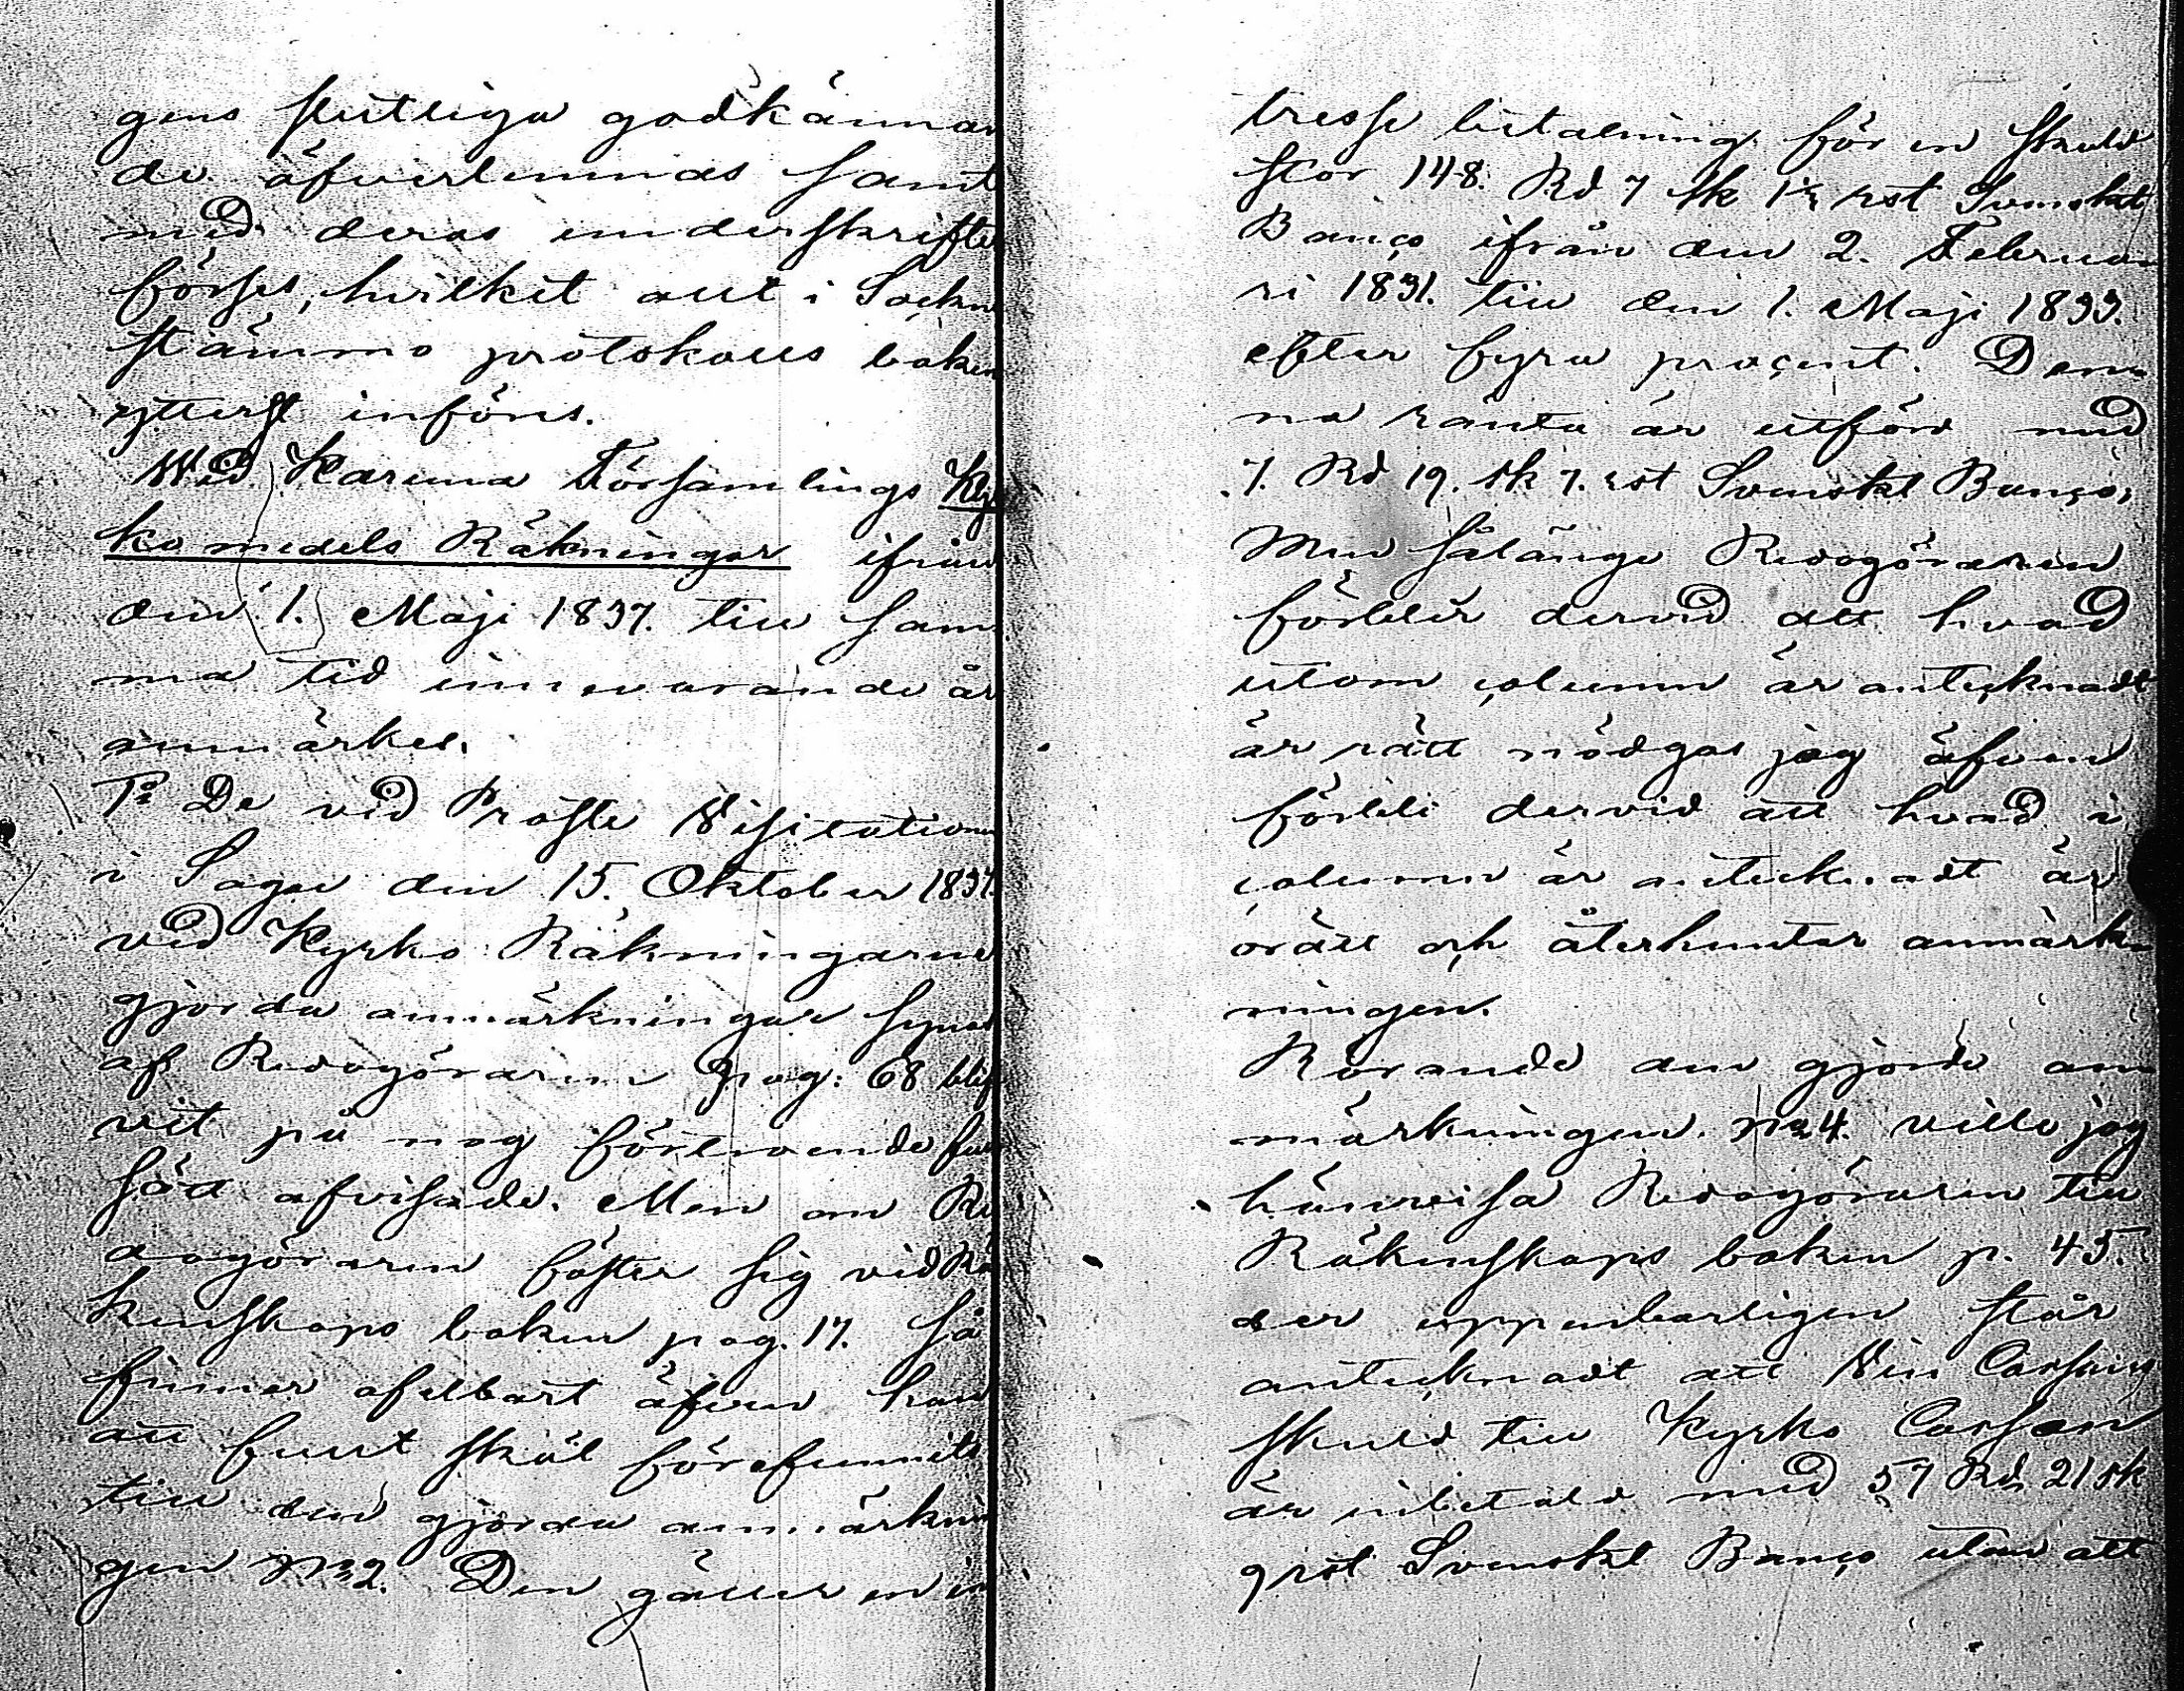 gens slutliga godkännan
de öfverlemnas samt
med deras underskrifter
förses, hvilket allt i Sockne
stämmo protokolls boken
ytterst införes.
Wid Karuna Församlings Kyr
ko medels Räkningar ifrån
den 1. Maji 1837. till sam
ma tid innevarande år
anmärkes.
De vid Proste Visitationen
i Sagu den 15. Oktober 1837.
vid Kyrko Räkningarne
gjorda anmärkningar synes
af Redogöraren pag: 68 blif
vit på nog förtroende
sätt afvisade. Men om Re
dogöraren fäster sig vid Rä
kenskaps boken pag. 17. så
finner ofelbart äfven han
att fullt skäl förefunnits
till den gjorda anmärknin
gen No 2. Den gäller en in
tresse betalning för en skuld
stor 148. Rd 7 sk rst Svenskt
Banco ifrån den 2. Februa
ri 1831. till den 1. Maji 1833.
efter fyra procent. Den
na ränta är utförd med
7. Rd 19. sk 7. rst Svenskt Banco,
Men sålänge Redogöraren
förblir dervid att hvad
utom column är antecknadt
är rätt nödgas jag äfven
förbli dervid att hvad i
column är antecknadt är
orätt och återhemtar anmärk
ningen.
Rörande den gjorde an
märkningen No 4. ville jag
hänvisa Redogöraren till
Räkenskaps boken p. 45.
der uppenbarligen står
antecknadt att Vin Cassans
skuld till Kyrko Cassan
är inbetald med 57 Rd 21 sk
9 rst Svenskt Banco utan att